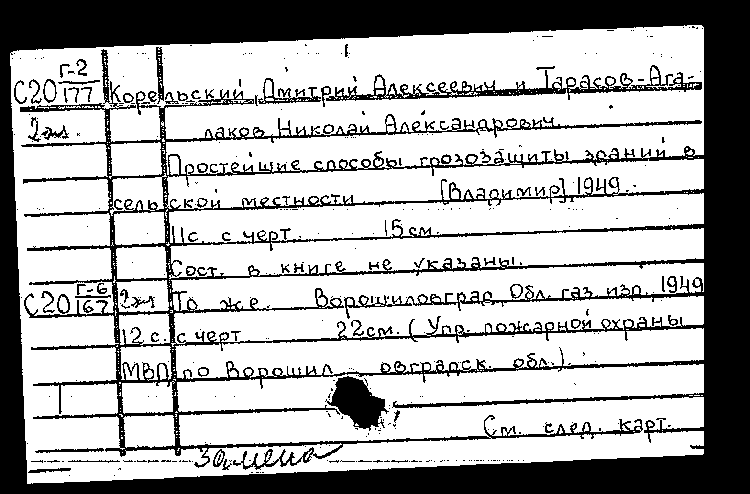 С20 Г-2/177 Корельский, Дмитрий Алексеевич и Тарасов-Ага-
2 экз. лаков, Николай Александрович
Простейшие способы грозозащиты зданий в
сельской местности [Владимир], 1949.
11 с. с черт. 15 см.
Сост. в книге не указаны.
С20 Г-6/167 2 экз То же. Ворошиловград, Обл. газ. изд., 1949
12 с. с черт 22 см. (Упр. пожарной охраны
МВД по Ворошиловградск. обл.).
См. след. карт.
замена